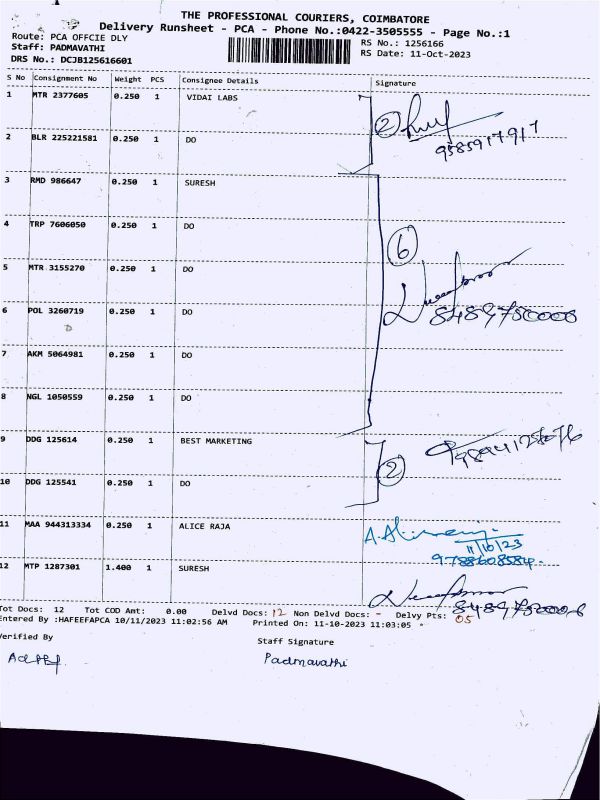 THE PROFESSIONAL COURIERS, COIMBATORE
Delivery Runsheet - PCA - Phone No.:0422-3505555 - Page No.:1
Route: PCA OFFCIE DLY
Staff: PADMAVATHI
DRS No.: DCJB125616601
RS No.: 1256166
RS Date: 11-Oct-2023
S No Consignment No Weight PCS Consignee Details Signature
1 MTR 2377605 0.250 1 VIDAI LABS
2 9585917917
2 BLR 225221581 0.250 1 DO
3 RMD 986647 0.250 1 SURESH
4 TRP 7606050 0.250 1 DO
6
5 MTR 3155270 0.250 1 DO
6 POL 3260719 0.250 1 DO
8489780008
7 AKM 5064981 0.250 1 DO
8 NGL 1050559 0.250 1 DO
9 DDG 125614 0.250 1 BEST MARKETING
2
10 DDG 125541 0.250 1 DO
11 MAA 944313334 0.250 1 ALICE RAJA
11/10/23
12 MTP 1287301 1.400 1 SURESH
Tot Docs: 12 Tot COD Amt: 0.00 Delvd Docs: 12 Non Delvd Docs: - Delvy Pts: 05
Entered By :HAFEEFAPCA 10/11/2023 11:02:56 AM Printed On: 11-10-2023 11:03:05
Verified By
Staff Signature
Padmavathi